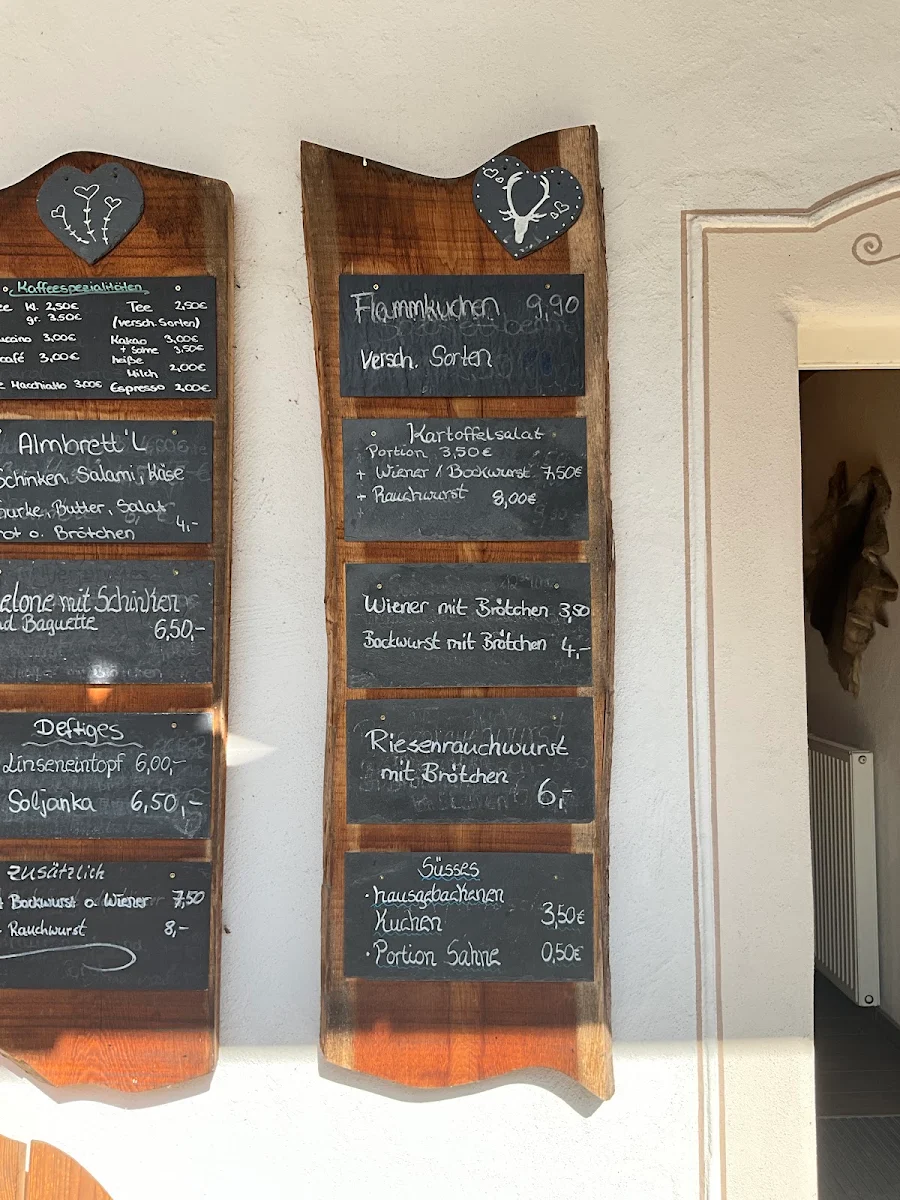 Kaffeespezialitäten
Kl. 2,50€
gr. 3,50€
3,00€
3,00€
Macchiatto 3,00€
Tee 2,50€
(versch. Sorten)
Kakao 3,00€
+ Sahne 3,50€
heiße
Milch 2,00€
Espresso 2,00€
Almbrett'L
Schinken, Salami, Käse
Butter, Salat
o. Brötchen 4,-
mit Schinken
Baguette 6,50,-
Deftiges
Linseneintopf 6,00,-
Soljanka 6,50,-
Zusätzlich
Bockwurst o. Wiener 7,50
Rauchwurst 8,-
Flammkuchen 9,90
Versch. Sorten
Kartoffelsalat
Portion 3,50€
+ Wiener / Bockwurst 7,50€
+ Rauchwurst 8,00€
Wiener mit Brötchen 3,50
Bockwurst mit Brötchen 4,-
Riesenrauchwurst
mit Brötchen
6,-
Süsses
· hausgebackenen
Kuchen 3,50€
· Portion Sahne 0,50€